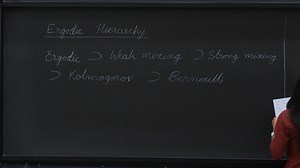 Ergodic Hierarchy
Ergodic ⊃ Weak mixing ⊃ Strong mixing
⊃ Kolmogorov ⊃ Bernoulli